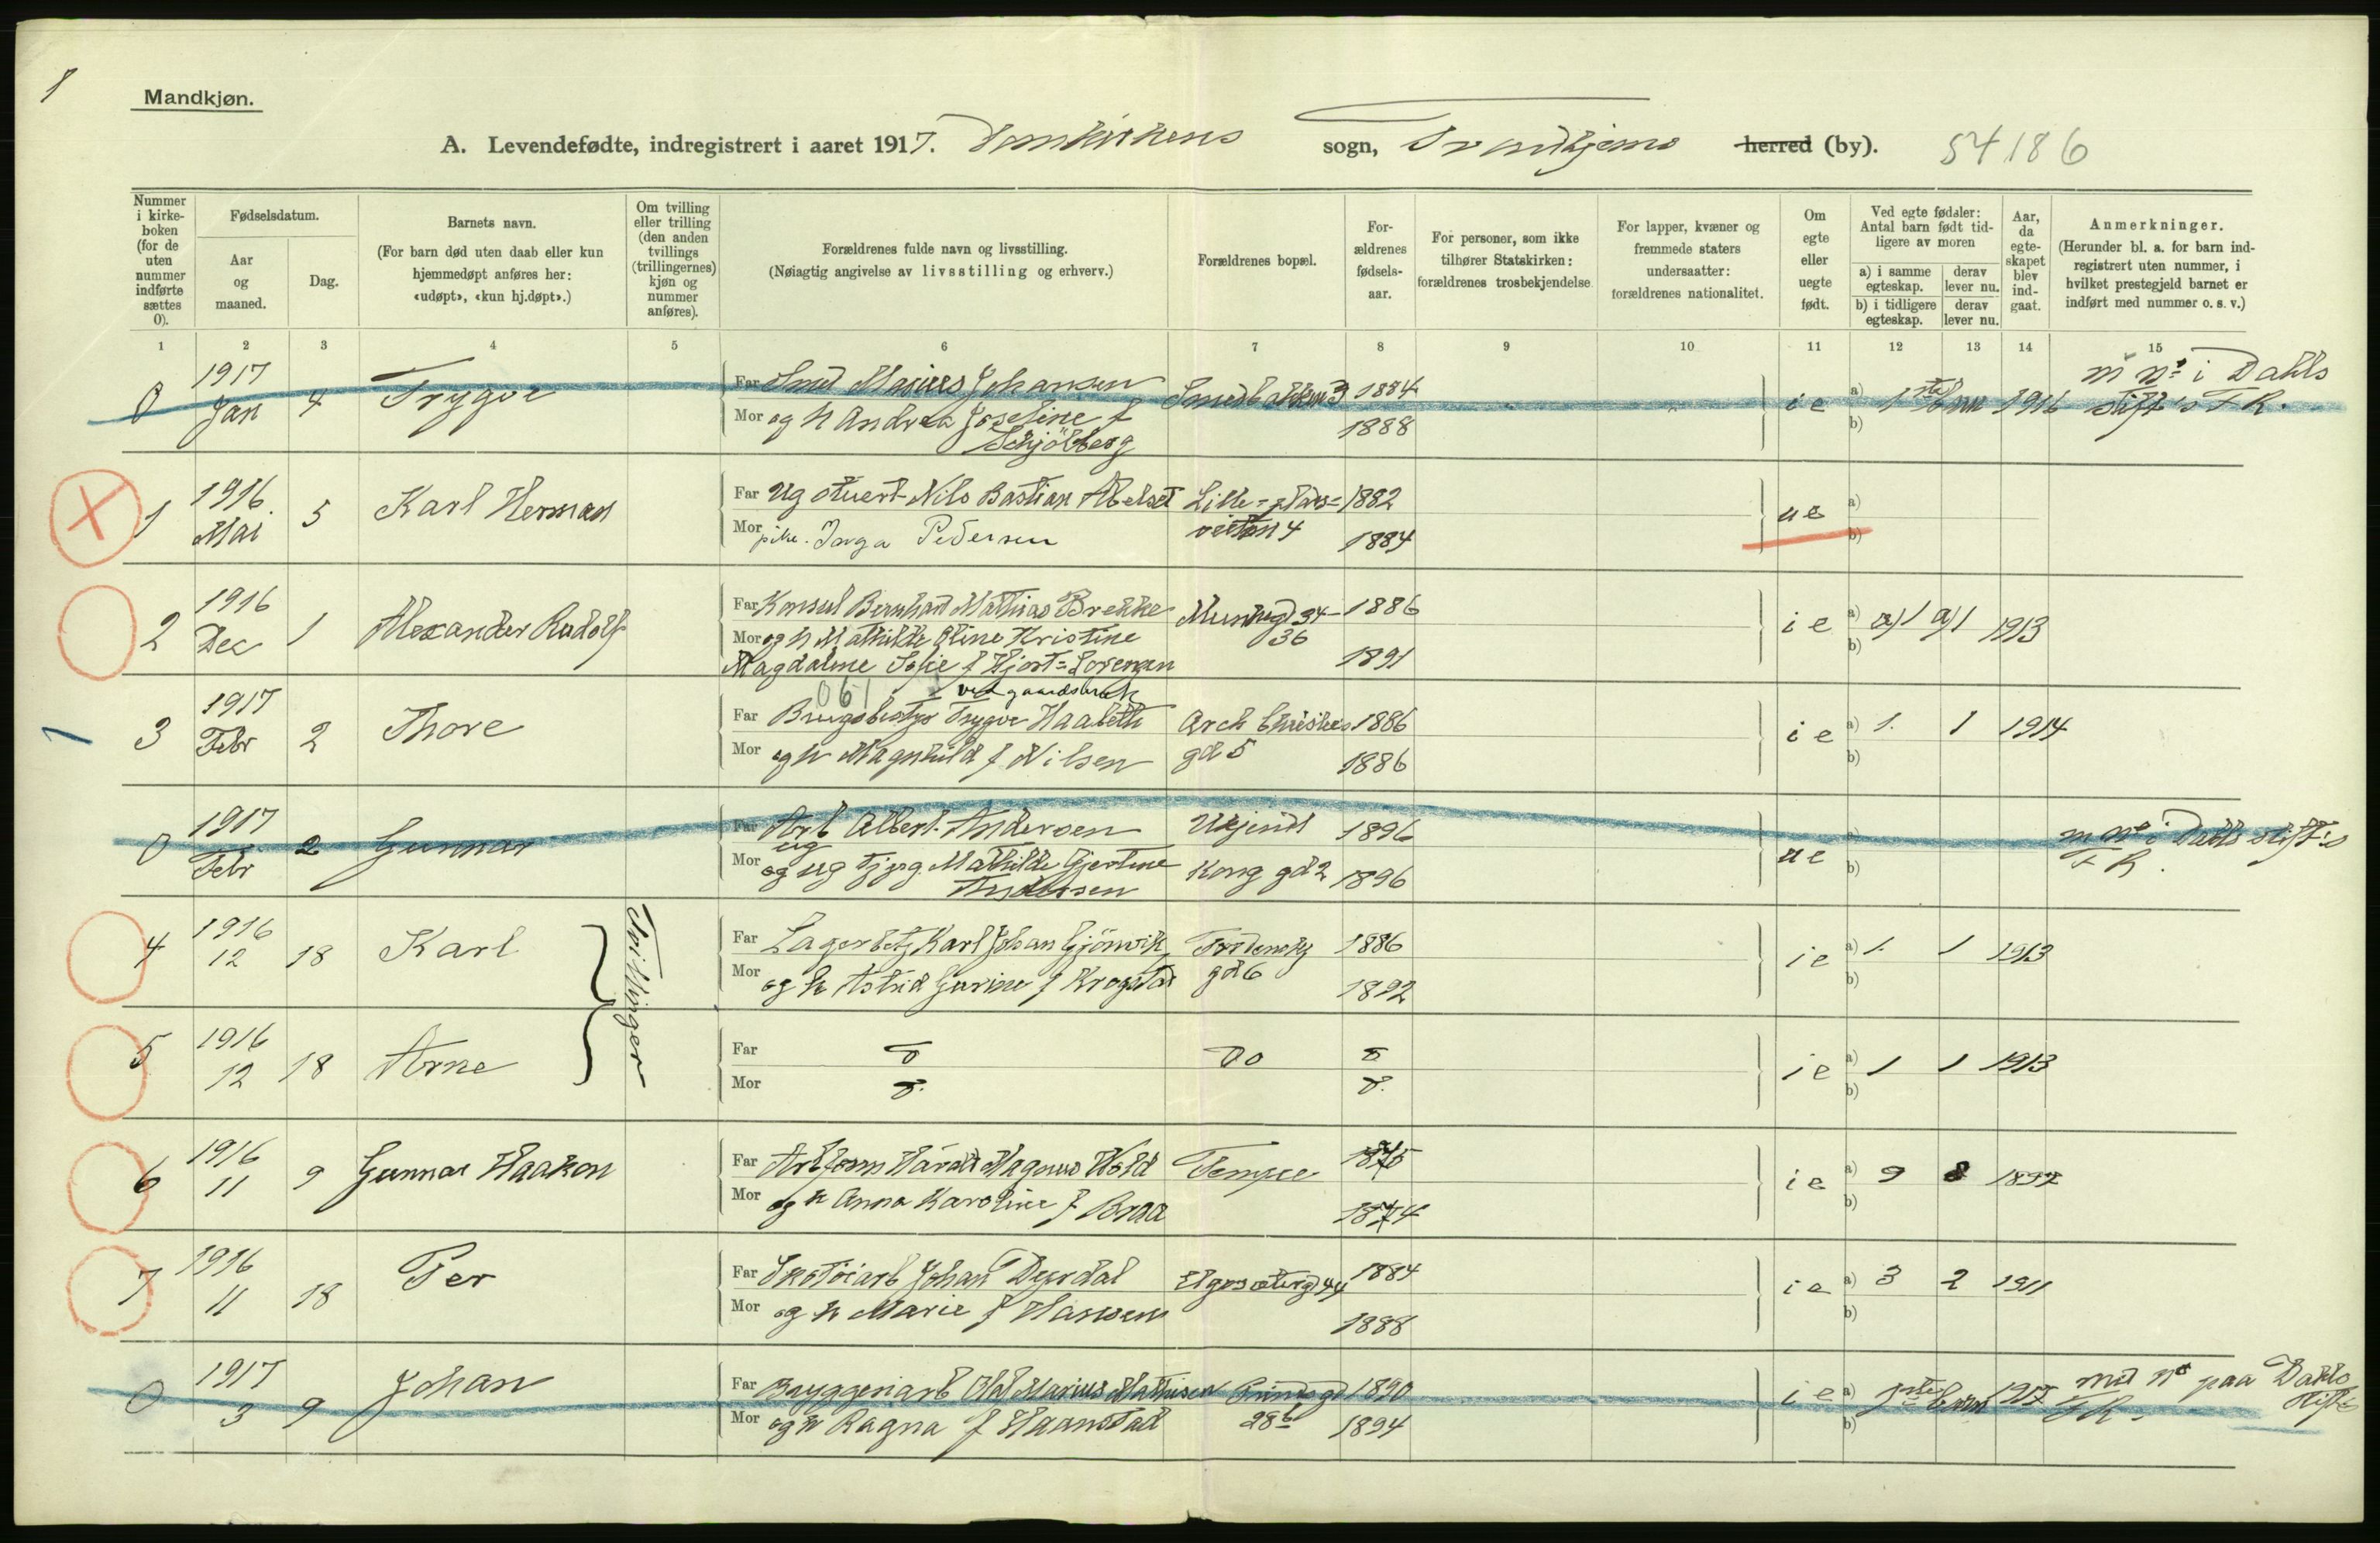 1
Mandkjøn.
A. Levendefødte, indregistrert i aaret 1917. Domkirkens sogn, Trondhjems herred (by). 54186
Nummer i kirke-boken (for de uten nummer indførte sættes 0).
Fødselsdatum.
Aar og maaned.
Dag.
Barnets navn.
(For barn død uten daab eller kun hjemmedøpt anføres her: «udøpt», «kun hj.døpt».)
Om tvilling eller trilling (den anden tvillings (trillingernes) kjøn og nummer anføres).
Forældrenes fulde navn og livsstilling.
(Nøiagtig angivelse av livsstilling og erhverv.)
Forældrenes bopæl.
For-ældrenes fødsels-aar.
For personer, som ikke tilhører Statskirken: forældrenes trosbekjendelse.
For lapper, kvæner og fremmede staters undersaatter: forældrenes nationalitet.
Om egte eller uegte født.
Ved egte fødsler: Antal barn født tid-ligere av moren
a) i samme egteskap. derav lever nu.
b) i tidligere egteskap. derav lever nu.
Aar, da egte-skapet blev ind-gaat.
Anmerkninger.
(Herunder bl. a. for barn ind-registrert uten nummer, i hvilket prestegjeld barnet er indført med nummer o. s. v.)
1 2 3 4 5 6 7 8 9 10 11 12 13 14 15
0 1917 Jan 4 Trygve
Far Smed Marius Johansen Smedbakken 3 1884
Mor og h Andrea Joseline f Schjölberg 1888
i e a) 1ste b) 1916 m No i Dahls stift's F K.
1 1916. Mai 5 Karl Herman
Far Ug stuert Nils Bastian Abelset Lille-plads- 1882
Mor pike. Inga Pedersen veiten 4 1884
u e a) b)
2 1916 Dec 1 Alexander Rudolf
Far Konsul Bernhard Mathias Brekke Munkegd 34- 1886
Mor og h Mathilde Oline Kristine 36
Magdalene Sofie f Hjort=Lorenzen 1891
i e a) a) 1 a) 1 1913 b)
061 ved gaardsbruk
1 3 1917 Febr 2 Thore
Far Brugsbestyr Trygve Haabeth Arch Christies 1886
Mor og h Magnhild f Nilsen gd 5 1886
i e a) 1. 1 1914 b)
0 1917 Febr 2 Gunnar
Far Arb Albert Andersen Ukjendt 1896
ug
Mor og ug tj.pg. Mathilde Gjertine Andersen Kong gd 2 1896
u e a) b) m No i Dahls stift's F K.
4 1916 12 18 Karl
Tvillinger
Far Lagerbetj Karl Johan Gjönvik Tordensky 1886
Mor og h Astrid Gurine f Krogstad gd 6 1892
i e a) 1. 1 1913 b)
5 1916 12 18 Arne
Far Do
Mor
i e a) 1 1 1913 b)
6 1916 11 9 Gunnar Haakon
Far Arb form Harald Magnus Hold Tempe 1875
Mor og h Anna Karoline f Braa 1874
i e a) 9 8 1897 b)
7 1916 11 18 Per
Far Skotöiarb Johan Dyrdal Elgesæterg 44 1884
Mor og h Marie f Hansen 1888
i e a) 3 2 1911 b)
0 1917 3 9 Johan
Far Bryggeriarb Olaf Marius Mathisen Prindsgd 1890
Mor og h Ragna f Haanstad 28b 1894
i e a) 1ste barn 1917 b) med No paa Dahls Stift's F K.